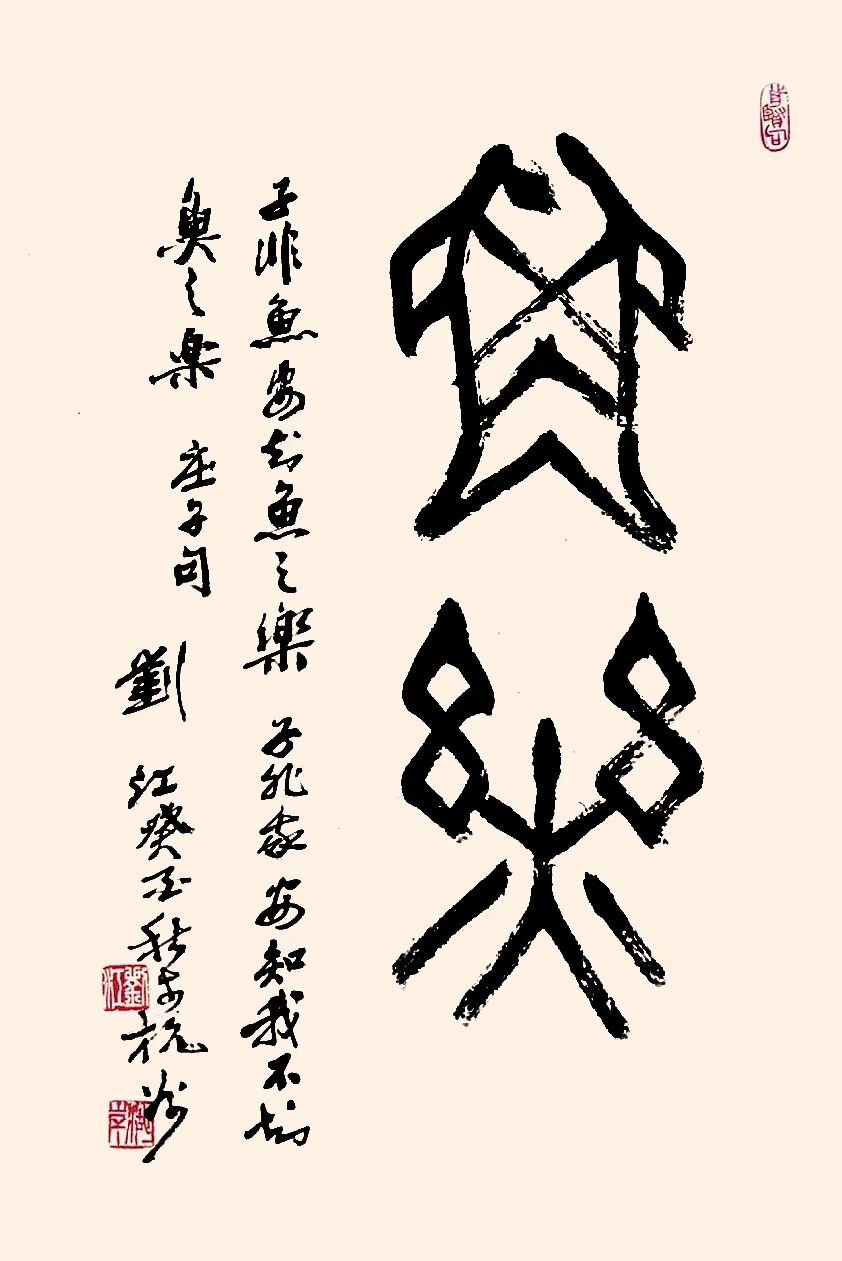 魚樂
子非魚安知魚之樂 子非我安知我不知
魚之樂 庄子句
劉江癸酉秋於杭州
劉江